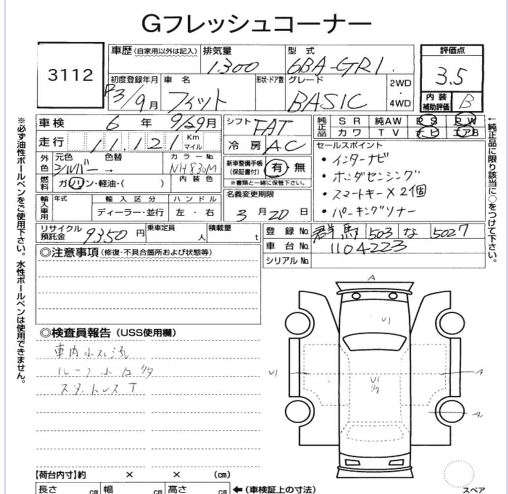 Gフレッシュコーナー
3112
車歴 (自家用以外は記入) 排気量 1300 型式 6BA-GR1 評価点 3.5
初度登録年月 R3/9月 車名 フィット 形状・ドア数 グレード BASIC 2WD・4WD 内装補助評価 B
車検 6年9/29月 シフト FAT 純正品 SR 純AW PS PW
走行 11,121 Km マイル 冷房 AC カワ TV ナビ エアB
外色 元色 シルバー 色替 カラーNo NH830M 新車整備手帳(保証書付) 有・無 ※書類と一緒に保管下さい。
燃料 ガソリン・軽油・( ) 内装色
輸入車用 年式 輸入区分 ディーラー・並行 ハンドル 左・右 名義変更期限 3月20日
セールスポイント
・インターナビ
・ホンダセンシング
・スマートキー×2個
・パーキングソナー
リサイクル預託金 9350円 乗車定員 人 積載量 t 登録No. 群馬 503 な 5027
車台No. 1104223
シリアルNo.
◎注意事項 (修復・不具合箇所および状態等)
◎検査員報告 (USS使用欄)
スタッドレスT
A
U1
U1
U1
A
A
【荷台内寸】約 × × (㎝)
長さ ㎝ 幅 ㎝ 高さ ㎝ ←(車検証上の寸法)
スペア
※必ず油性ボールペンをご使用下さい。水性ボールペンは使用できません。
↑純正品に限り該当に○をつけて下さい。